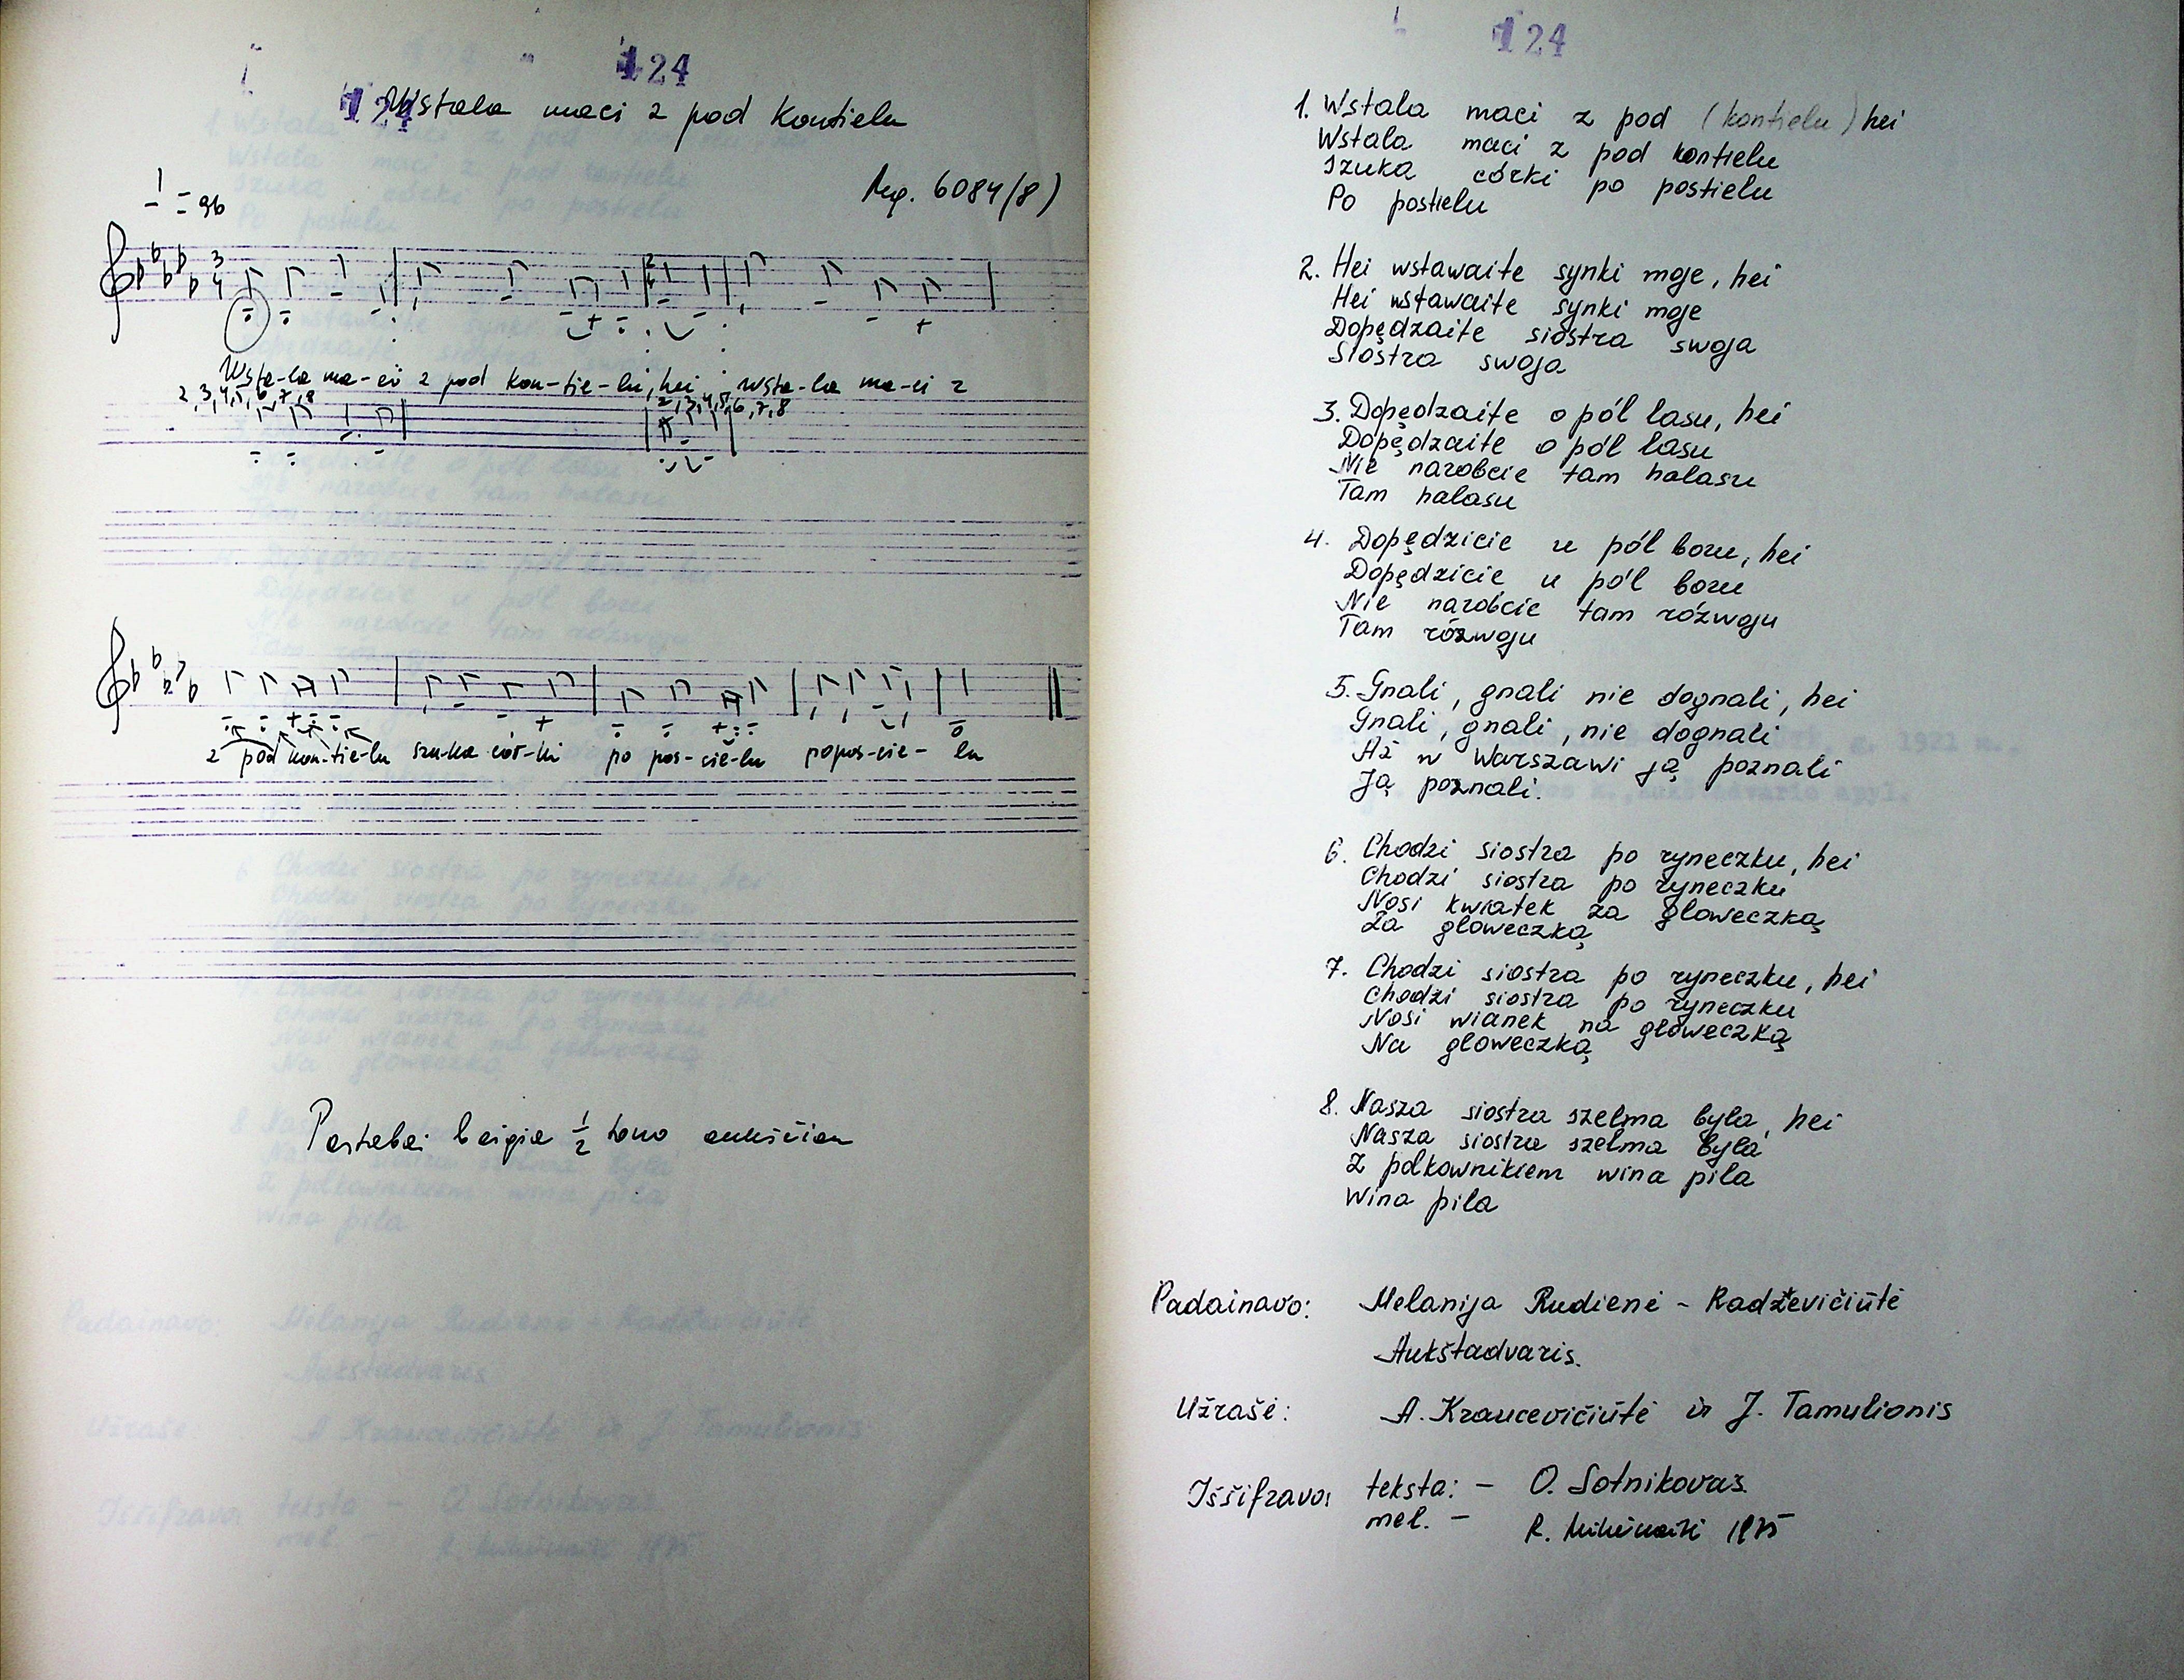 124
124
Wstala maci z pod kontielu
Mg. 6084(8)
= 96
3
4
Wsta-la ma-ci z pod kon-tie-lu, hei wsta-la ma-ci z
2,3,4,5,6,7,8
2,3,4,5,6,7,8
z pod kon-tie-lu szu-ka cór-ki po pos-cie-lu po pos-cie-lu
Pastabai baigia 1/2 tono aukščiau
124
1. Wstala maci z pod (kontielu) hei
Wstala maci z pod kontielu
Szuka córki po postielu
Po postielu
2. Hei wstawaite synki moje, hei
Hei wstawaite synki moje
Dopędzaite siostra swoja
Siostra swoja
3. Dopędzaite o pól lasu, hei
Dopędzaite o pól lasu
Nie narobcie tam halasu
Tam halasu
4. Dopędzicie u pól boru, hei
Dopędzicie u pól boru
Nie narobcie tam rózwoju
Tam rózwoju
5. Gnali, gnali nie dognali, hei
Gnali, gnali, nie dognali
Aż w Warszawi ją poznali
Ją poznali.
6. Chodzi siostra po ryneczku, hei
Chodzi siostra po ryneczku
Nosi kwiatek za gloweczką
Za gloweczką
7. Chodzi siostra po ryneczku, hei
Chodzi siostra po ryneczku
Nosi wianek na gloweczką
Na gloweczką
8. Nasza siostra szelma byla, hei
Nasza siostra szelma byla
Z polkownikiem wina pila
Wina pila
Padainavo: Melanija Rudienė - Radževičiūtė
Aukštadvaris.
Užrašė: A. Kraucevičiūtė ir J. Tamulionis
Iššifravo: teksta: - O. Sotnikovas.
mel. - R. 1975